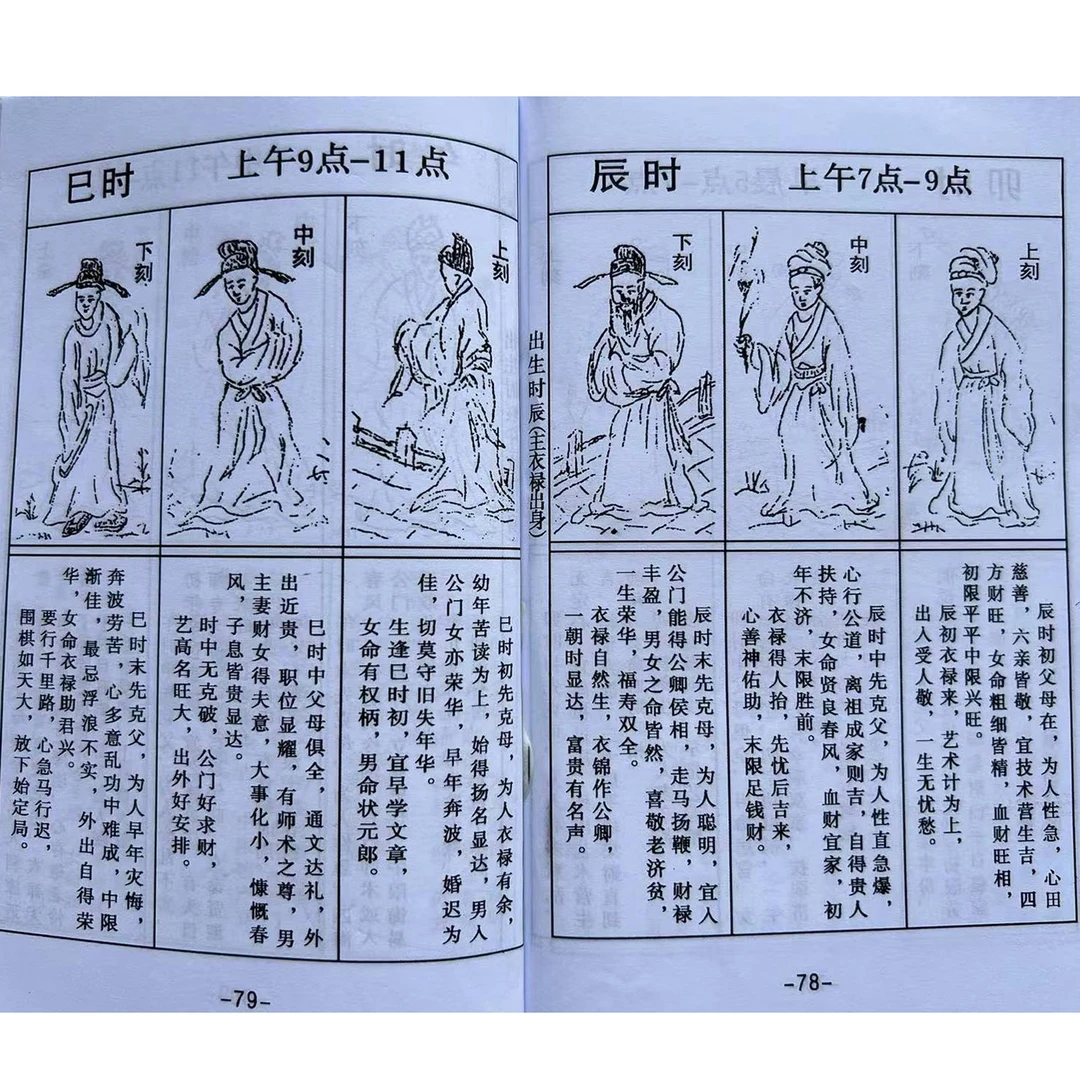 辰时
上午7点-9点
上刻
辰时初父母在，为人性急，心田
慈善，六亲皆敬，宜技术营生吉，四
方财旺，女命粗细皆精，血财旺相，
初限平平中限兴旺。
辰初衣禄来，艺术计为上，
出入受人敬，一生无忧愁。
中刻
辰时中先克父，为人性直急爆，
心行公道，离祖成家则吉，自得贵人
扶持，女命贤良春风，血财宜家，初
年不济，末限胜前。
衣禄得人抬，先忧后吉来，
心善神佑助，末限足钱财。
下刻
辰时末先克母，为人聪明，宜入
公门能得公卿侯相，走马扬鞭，财禄
丰盈，男女之命皆然，喜敬老济贫，
一生荣华，福寿双全。
衣禄自然生，衣锦作公卿，
一朝时显达，富贵有名声。
出生时辰(主衣禄出身)
-78-
巳时
上午9点-11点
上刻
巳时初先克母，为人衣禄有余，
幼年苦读为上，始得扬名显达，男人
公门女亦荣华，早年奔波，婚迟为
佳，切莫守旧失年华。
生逢巳时初，宜早学文章，
女命有权柄，男命状元郎。
中刻
巳时中父母俱全，通文达礼，外
出近贵，职位显耀，有师术之尊，男
主妻财女得夫意，大事化小，慷慨春
风，子息皆贵显达。
时中无克破，公门好求财，
艺高名旺大，出外好安排。
下刻
巳时末先克父，为人早年灾悔，
奔波劳苦，心多意乱功中难成，中限
渐佳，最忌浮浪不实，外出自得荣
华，女命衣禄助君兴。
要行千里路，心急马行迟，
围棋如天大，放下始定局。
-79-